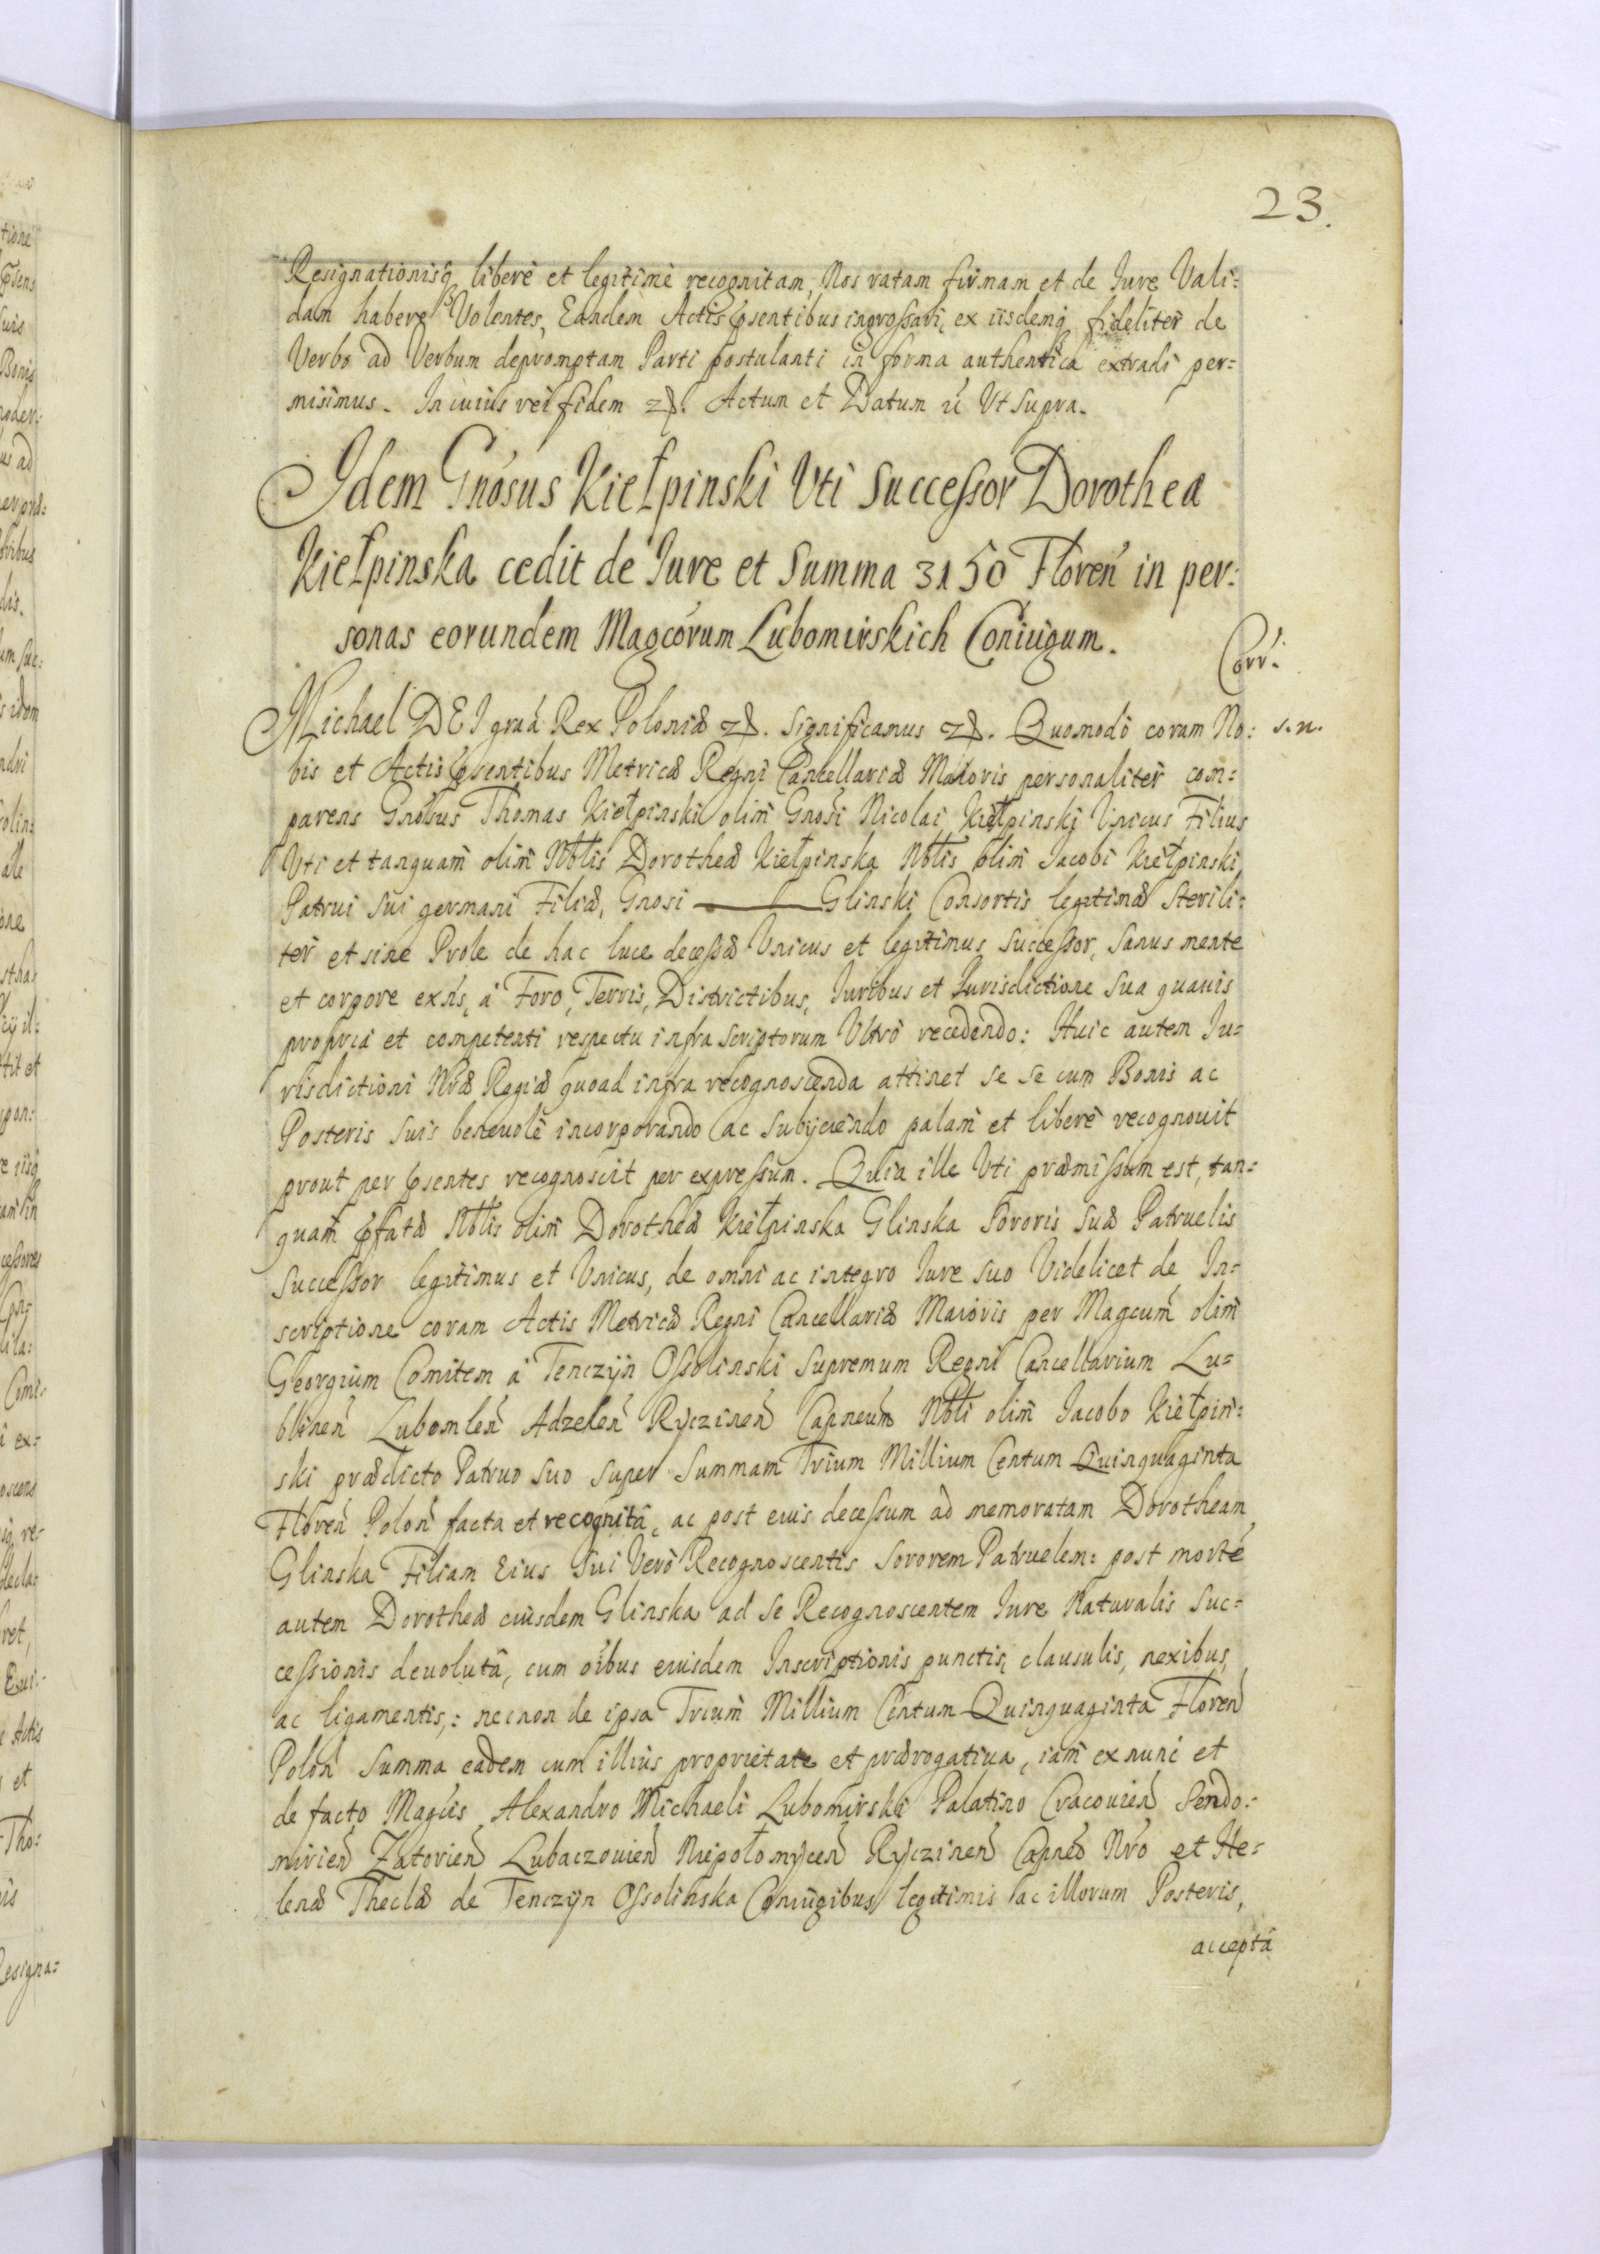 23.
Resignationisq liberè et legitimè recognitam, Nos ratam firmam et de Iure Vali:
dam habere Volentes, Eandem Actis pñsentibus ingroſsari, ex iisdemq fideliter de
Verbo ad Verbum depromptam Parti postulanti in forma authentica extradi per:
misimus. In cuius rei fidem etc. Actum et Datum ũ Ut Supra.
Idem Gnósus Kiełpinski Uti Succeſsor Dorothea
Kiełpinska cedit de Iure et Summa 3150 Floreń in per:
sonas eorundem Magcórum Lubomirskich Coniugum.
Corr:
s. n.
Michael DEI gruá Rex Poloniæ etc. Significamus etc. Quomodo coram No:
bis et Actis pñsentibus Metricæ Regni Cancellariæ Maioris personaliter com:
parens Gnósus Thomas Kiełpinski olim Gnosi Nicolai Kiełpinski Unicus Filius
Uti et tanquam olim Nbtlis Dorotheæ Kiełpinska Nbtlis olim Jacobi Kiełpinski
Patrui Sui germani Filiæ, Gnosi ——— Glinski Consortis legitimæ Sterili:
ter et sine Prole de hac luce deceſsæ Unicus et legitimus Succeſsor, Sanus mente
et corpore exñs, à Foro, Terris, Districtibus, Iuribus et Iurisdictione Sua quavis
propria et competenti respectu infra Scriptorum Ultrò recedendo: Huic autem Iu-
risdictioni Nræ Regiæ quoad infra recognoscenda attinet se se cum Bonis ac
Posteris Suis benevolè incorporando ac Subijciendo palam et liberè recognouit
prout per pñsentes recognoscit per expreſsum. Quia ille Uti præmiſsum est, tan:
quam pfatæ Nbtlis olim Dorotheæ Kiełpinska Glinska Sororis Suæ Patruelis
Succeſsor legitimus et Unicus, de omni ac integro Iure Suo Videlicet de In:
scriptione coram Actis Metricæ Regni Cancellariæ Maioris per Magcum olim
Georgium Comitem à Tenczyn Oſsolinski Supremum Regni Cancellarium Lu-
blineñ Lubomleñ Adzeleñ Ryczineñ Capneum Nbtli olim Jacobo Kiełpin:
ski prædicto Patruo Suo Super Summam Trium Millium Centum Quinquaginta
Floreñ Poloñ facta et recognitâ, ac post eius deceſsum ad memoratam Dorotheam
Glinska Filiam Eius Sui Verò Recognoscentis Sororem Patruelem: post morté
autem Dorotheæ eiusdem Glinska ad Se Recognoscentem Iure Naturalis Suc:
ceſsionis devolutâ, cum oibus eiusdem Inscriptionis punctis, clausulis, nexibus,
ac ligamentis,: necnon de ipsa Trium Millium Centum Quinquaginta Floreñ
Poloñ Summa eadem cum illius proprietate et prærogatiua, iam exnunc et
de facto Magcis Alexandro Michaeli Lubomirski Palatino Cracouieñ Sendo:
mirieñ Zatorieñ Lubaczouieñ Niepołomyceñ Ryczineñ Capneo Nro et He-
lenæ Theclæ de Tenczyn Oſsolinska Coniugibus legitimis ac illorum Posteris,
acceptâ